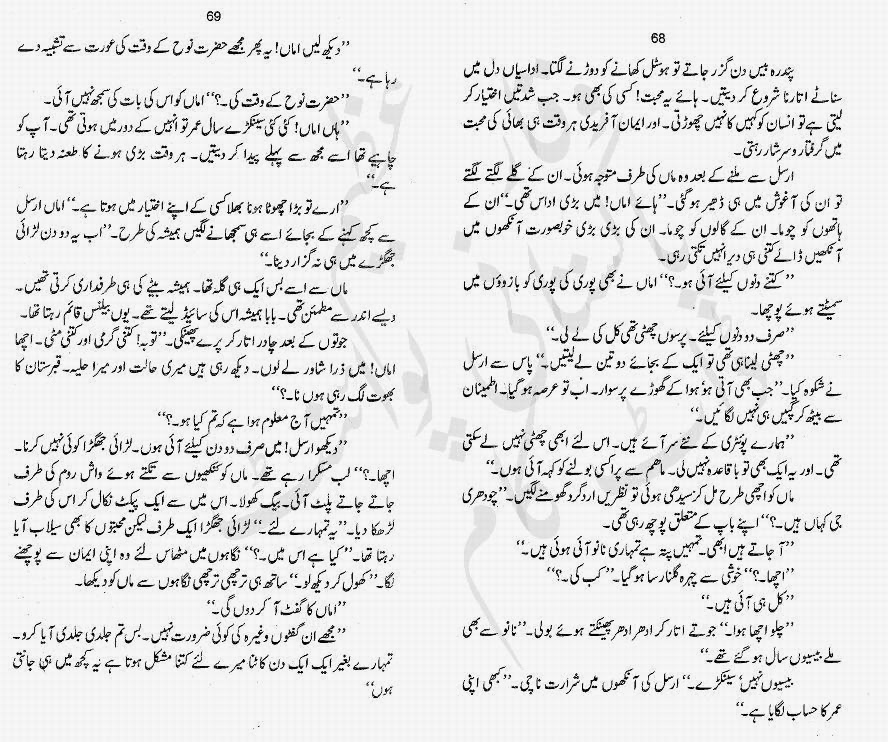 68
پندرہ بیس دن گزر جاتے تو ہوسٹل کھانے کو دوڑنے لگتا۔ اداسیاں دل میں
سناٹے اتارنا شروع کر دیتیں۔ ہائے یہ محبت! کسی کی بھی ہو۔ جب شدتیں اختیار کر
لیتی ہے تو انسان کو کہیں کا نہیں چھوڑتی۔ اور ایمان آفریدی ہر وقت ہی بھائی کی محبت
میں گرفتار و سرشار رہتی۔
ارسل سے ملنے کے بعد وہ ماں کی طرف متوجہ ہوئی۔ ان کے گلے لگتے لگتے
تو ان کی آغوش میں ہی ڈھیر ہو گئی۔ ’’ہائے اماں! میں بڑی اداس تھی۔‘‘ ان کے
ہاتھوں کو چوما۔ ان کے گالوں کو چوما۔ ان کی بڑی بڑی خوبصورت آنکھوں میں
آنکھیں ڈالے کتنی ہی دیر انہیں تکتی رہی۔
’’کتنے دنوں کیلئے آئی ہو۔؟‘‘ اماں نے بھی پوری کی پوری کو بازوؤں میں
سمیٹتے ہوئے پوچھا۔
’’صرف دو دنوں کیلئے۔ پرسوں چھٹی تھی کل کی لے لی۔‘‘
’’چھٹی لینا ہی تھی تو ایک کے بجائے دو تین لے لیتیں۔‘‘ پاس سے ارسل
نے شکوہ کیا۔ ’’جب بھی آتی ہو‘ ہوا کے گھوڑے پر سوار۔ اب تو عرصہ ہو گیا۔ اطمینان
سے بیٹھ کر گپیں ہی نہیں لگائیں۔‘‘
’’ہمارے پوئٹری کے نئے سر آئے ہیں۔ اس لئے ابھی چھٹی نہیں لے سکتی
تھی۔ اور یہ ایک بھی تو باقاعدہ نہیں لی۔ ماھم سے پراکسی بولنے کو کہہ آئی ہوں۔‘‘
ماں کو اچھی طرح مل کر سیدھی ہوئی تو نظریں ارد گرد گھومنے لگیں۔ ’’چودھری
جی کہاں ہیں۔؟‘‘ اپنے باپ کے متعلق پوچھ رہی تھی۔
’’آ جاتے ہیں ابھی۔ تمہیں پتہ ہے تمہاری نانو آئی ہوئی ہیں۔‘‘
’’اچھا۔؟‘‘ خوشی سے چہرہ گلنار سا ہو گیا۔ ’’کب کی۔؟‘‘
’’کل ہی آئی ہیں۔‘‘
’’چلو اچھا ہوا۔‘‘ جوتے اتار کر ادھر ادھر پھینکتے ہوئے بولی۔ ’’نانو سے بھی
ملے بیسیوں سال ہو گئے تھے۔‘‘
بیسیوں نہیں‘ سینکڑے۔‘‘ ارسل کی آنکھوں میں شرارت ناچی۔ ’’کبھی اپنی
عمر کا حساب لگایا ہے۔‘‘
69
’’دیکھ لیں اماں! یہ پھر مجھے حضرت نوح کے وقت کی عورت سے تشبیہ دے
رہا ہے۔‘‘
’’حضرت نوح کے وقت کی۔؟‘‘ اماں کو اس کی بات کی سمجھ نہیں آئی۔
’’ہاں اماں! کئی کئی سینکڑے سال عمر تو انہیں کے دور میں ہوتی تھی۔ آپ کو
چاہیے تھا اسے مجھ سے پہلے پیدا کر دیتیں۔ ہر وقت بڑی ہونے کا طعنہ دیتا رہتا
ہے۔‘‘
’’ارے تو بڑا چھوٹا ہونا بھلا کسی کے اپنے اختیار میں ہوتا ہے۔‘‘ اماں ارسل
سے کچھ کہنے کے بجائے اسے ہی سمجھانے لگیں ہمیشہ کی طرح۔ ’’اب یہ دو دن لڑائی
جھگڑے میں ہی نہ گزار دینا۔‘‘
ماں سے اسے بس ایک ہی گلہ تھا۔ ہمیشہ بیٹے کی ہی طرفداری کرتی تھیں۔
ویسے اندر سے مطمئن تھی۔ بابا ہمیشہ اس کی سائیڈ لیتے تھے۔ یوں بیلنس قائم رہتا تھا۔
جوتوں کے بعد چادر اتار کر پرے پھینکی۔ ’’توبہ! کتنی گرمی اور کتنی مٹی۔ اچھا
اماں! میں ذرا شاور لے لوں۔ دیکھ رہی ہیں میری حالت اور میرا حلیہ۔ قبرستان کا
بھوت لگ رہی ہوں نا۔؟‘‘
’’تمہیں آج معلوم ہوا ہے کہ تم کیا ہو۔؟‘‘
’’دیکھو ارسل! میں صرف دو دن کیلئے آئی ہوں۔ لڑائی جھگڑا کوئی نہیں کرنا۔
اچھا۔؟‘‘ لب مسکرا رہے تھے۔ ماں کو کنکھیوں سے تکتے ہوئے واش روم کی طرف
جاتے جاتے پلٹ آئی۔ بیگ کھولا۔ اس میں سے ایک پیکٹ نکال کر اس کی طرف
لڑھکا دیا۔ ’’یہ تمہارے لئے۔‘‘ لڑائی جھگڑا ایک طرف لیکن محبتوں کا بھی سیلاب آیا
رہتا تھا۔ ’’کیا ہے اس میں۔؟‘‘ نگاہوں میں مٹھاس لئے وہ اپنی ایمان سے پوچھنے
لگا۔ ’’کھول کر دیکھ لو۔‘‘ ساتھ ہی ترچھی ترچھی نگاہوں سے ماں کو دیکھا۔
’’اماں کا گفٹ آ کر دوں گی۔‘‘
’’مجھے ان گفٹوں وغیرہ کی کوئی ضرورت نہیں۔ بس تم جلدی جلدی آیا کرو۔
تمہارے بغیر ایک ایک دن کاٹنا میرے لئے کتنا مشکل ہوتا ہے یہ کچھ میں ہی جانتی
ہوں‘‘